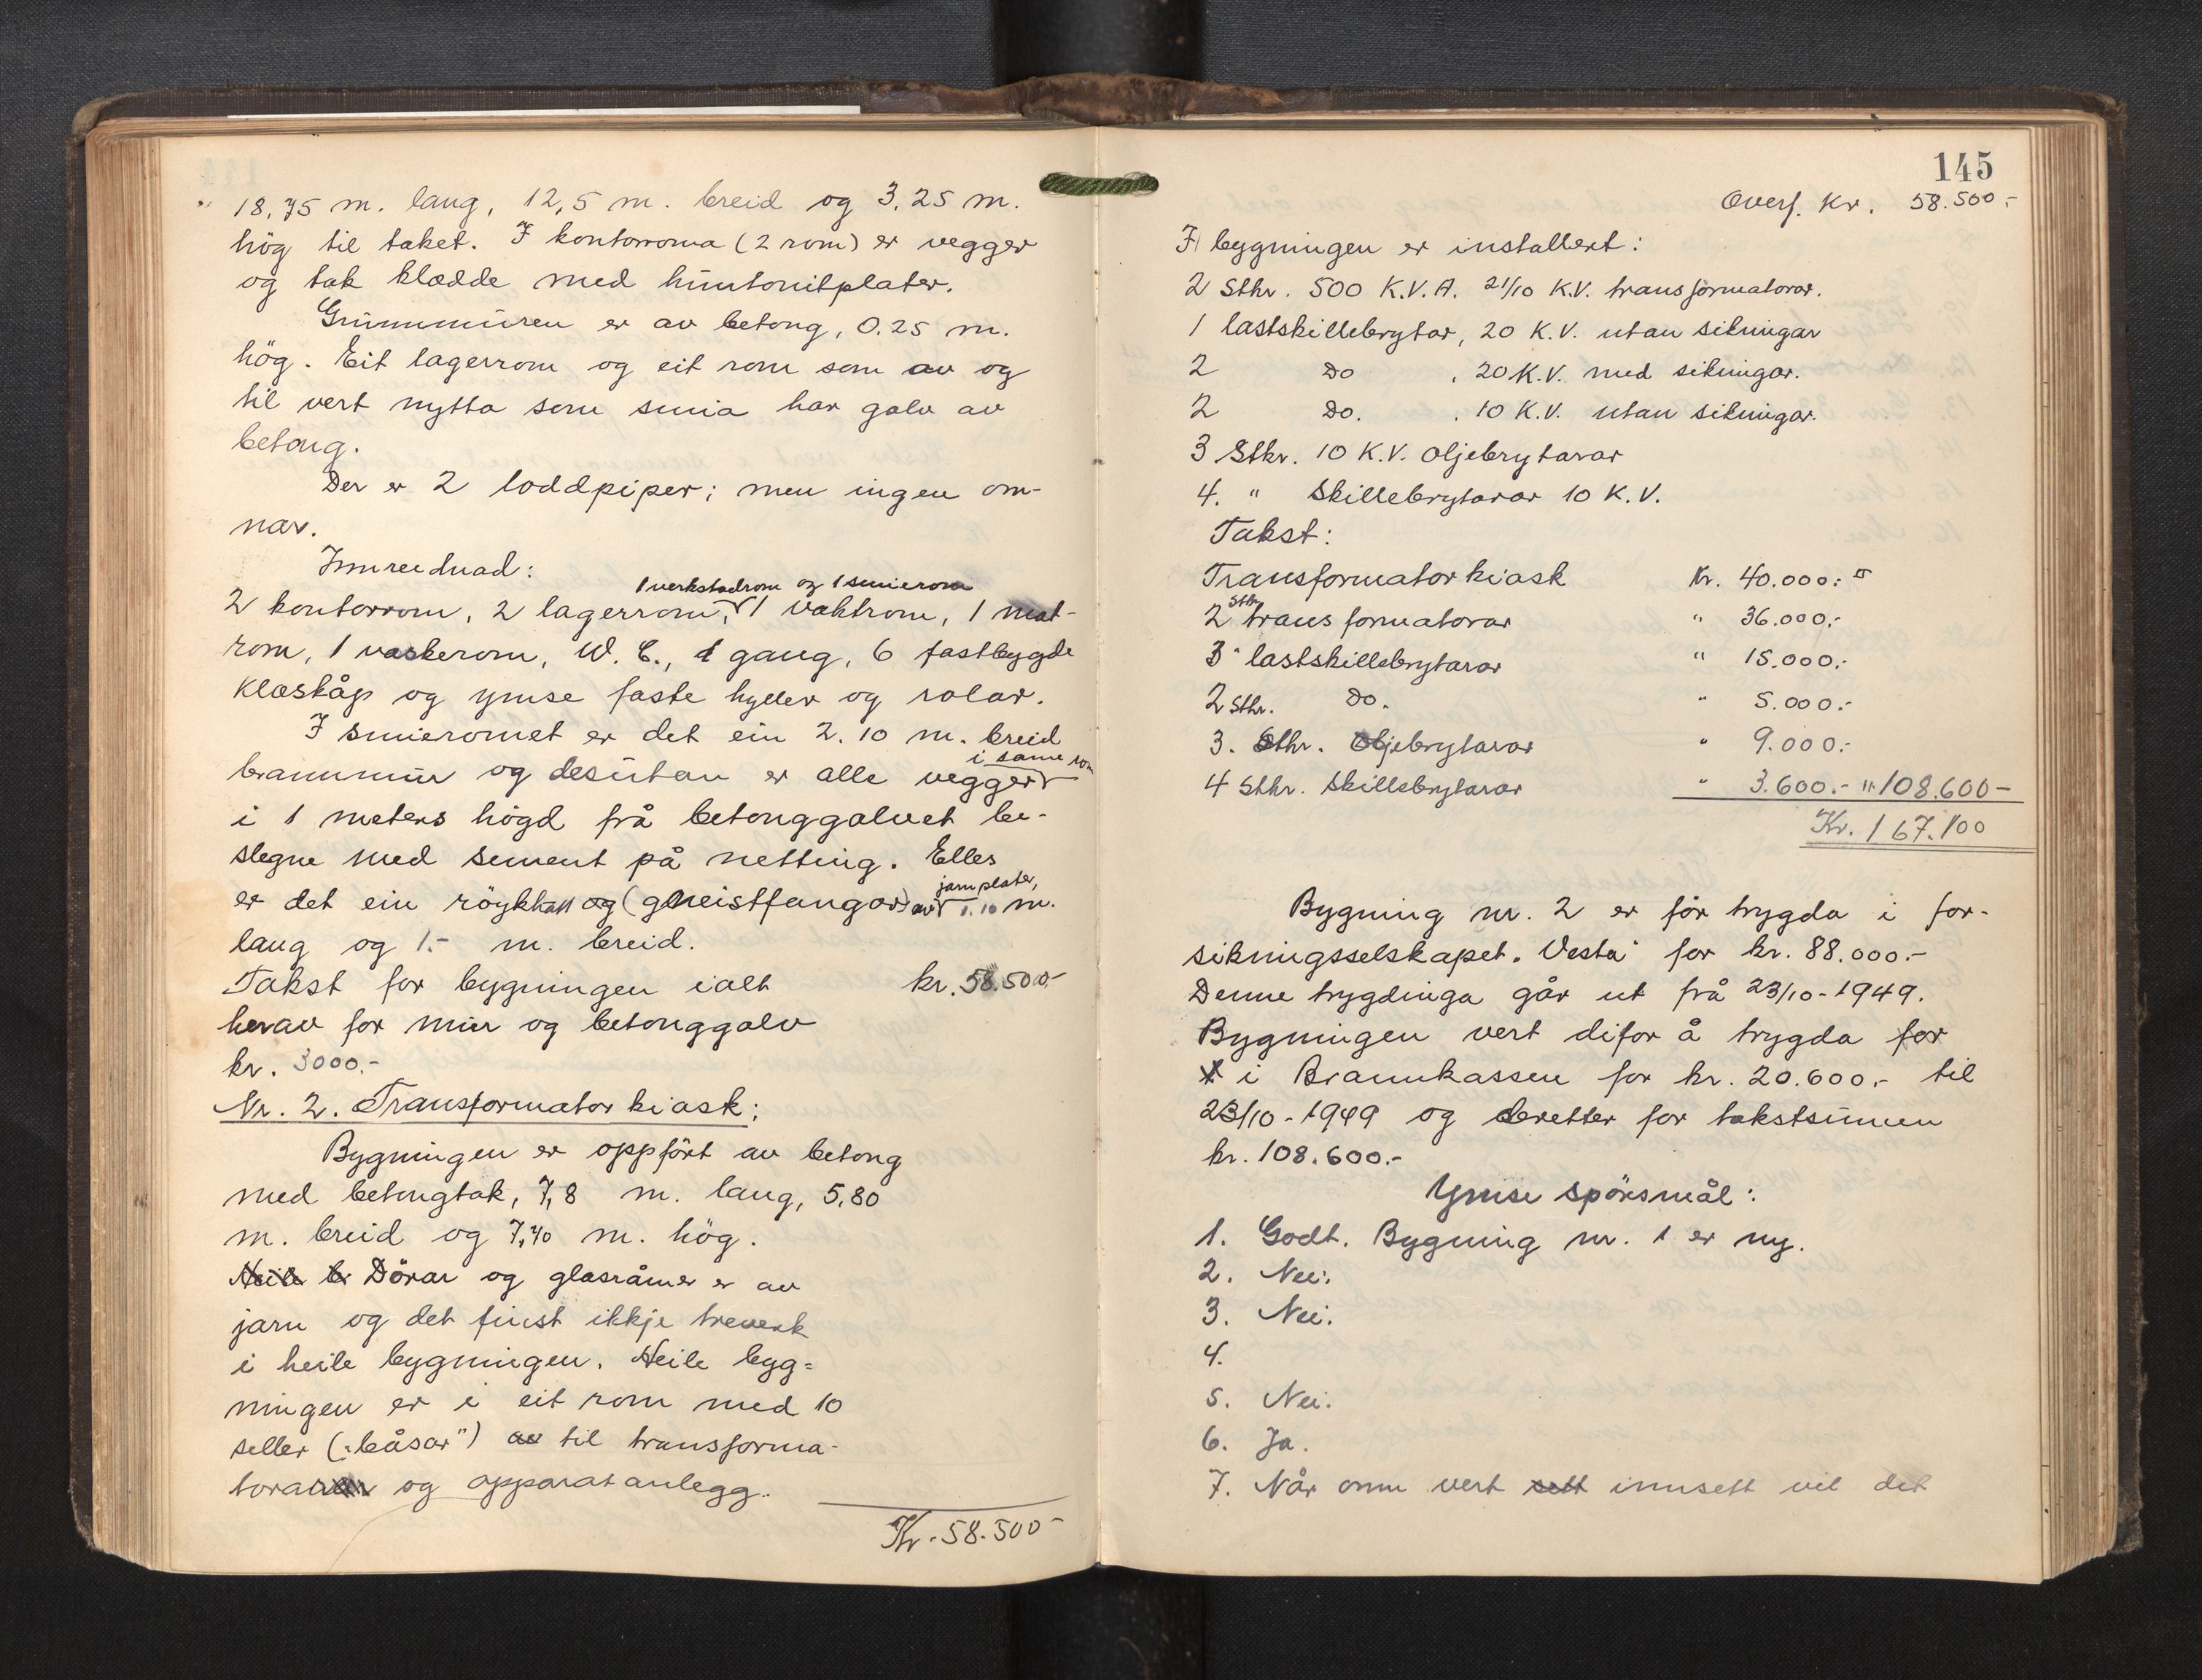 18,75 m. lang, 12,5 m. breid og 3.25 m.
hög til taket. I kontorroma (2 rom) er vegger
og tak klædde med huntonitplater.
Grunnmuren er av betong, 0.25 m.
hög. Eit lagerrom og eit rom som av og
til vert nytta som smia har golv av
betong.
Der er 2 loddpiper; men ingen om-
nar.
Innreidnad:
1 verkstadrom og 1 smierom
2 kontorrom, 2 lagerrom, 1 vaktrom, 1 mat-
rom, 1 vaskerom, W.C., 1 gang, 6 fastbygde
klæskåp og ymse faste hyller og rolar.
I smieromet er det ein 2.10 m. breid
i same rom
brannmur og desutan er alle vegger
i 1 meters högd frå betonggolvet be-
slegne med sement på netting. Elles
jarnplater,
er det ein röykhatt og (gneistfangar) av 1.10 m.
lang og 1.- m. breid.
Takst for bygningen ialt kr. 58.500.-
herav for mur og betonggolv
kr. 3000.-
Nr. 2. Transformatorkiosk:
Bygningen er oppfört av betong
med betongtak, 7,8 m. lang, 5,80
m. breid og 7,40 m. hög.
Heile br Dörar og glasråmer er av
jarn og det finst ikkje treverk
i heile bygningen. Heile byg=
ningen er i eit rom med 10
seller („båsar") av til transforma-
torar og apparatanlegg.
Kr. 58.500-
145
Overf. Kr. 58.500.-
I bygningen er installert:
2 Stkr. 500 K.V.A. 21/10 K.V. transformatorar.
1 lastskillebrytar, 20 K.V. utan sikringar
2 Do , 20 K.V. med sikringar.
2 Do. . 10 K.V. utan sikringar.
3 Stkr. 10 K.V. Oljebrytarar
4. " Skillebrytarar 10 K.V.
Takst:
Transformatorkiosk Kr. 40.000:-
2 Stkr transformatorar " 36.000.-
3 " lastskillebrytarar " 15.000.-
2 Stkr. Do. " 5.000.-
3. Stkr. Oljebrytarar " 9.000.-
4 Stkr. Skillebrytarar " 3.600.- " 108.600-
Kr. 167.100
Bygning nr. 2 er för trygda i for-
sikringsselskapet „Vesta" for kr. 88.000.-
Denne trygdinga går ut frå 23/10-1949.
Bygningen vert difor å trygda for
i Brannkassen for kr. 20.600.- til
23/10-1949 og deretter for takstsumen
kr. 108.600.-
Ymse spörsmål:
1. Godt. Bygning nr. 1 er ny.
2. Nei.
3. Nei.
4.
5. Nei.
6. Ja.
7. Når omn vert sett innsett vil det